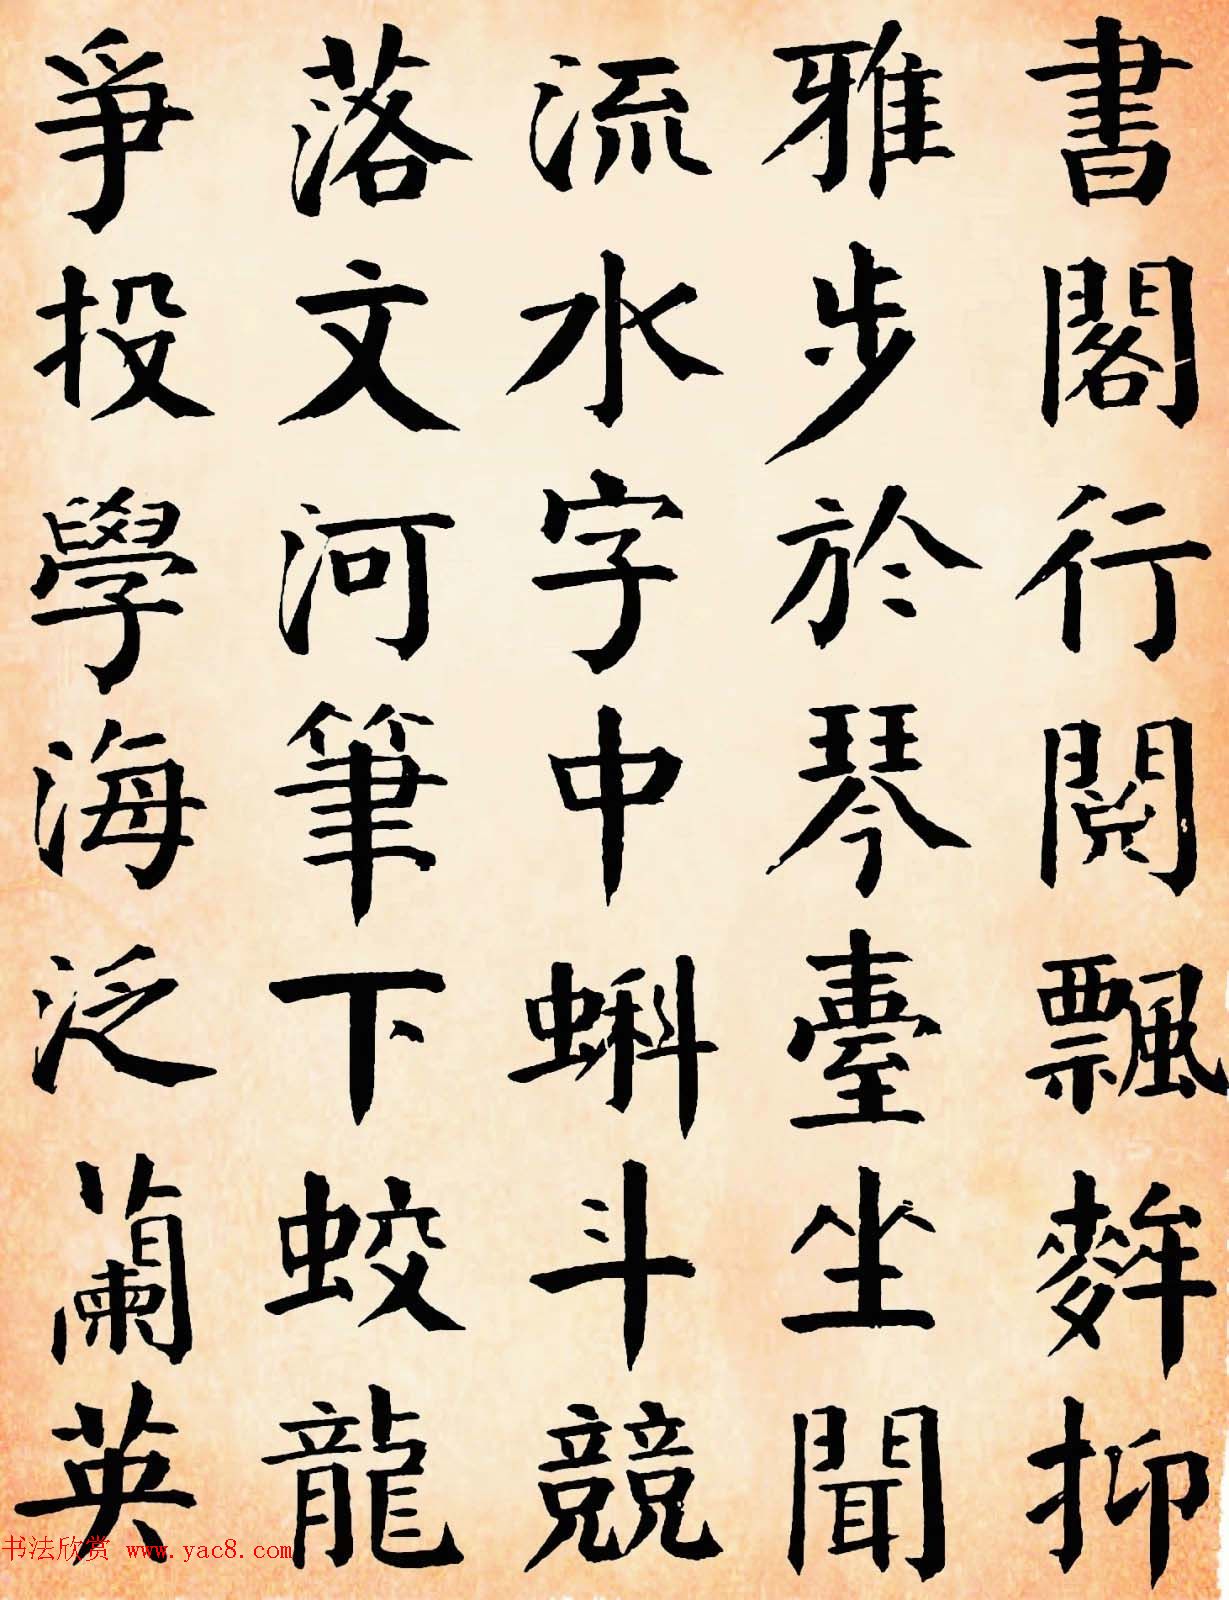 書閣行閱飄辭抑
雅步於琴臺坐聞
流水字中蝌斗競
落文河筆下蛟龍
爭投學海泛蘭英
书法欣赏 www.yac8.com